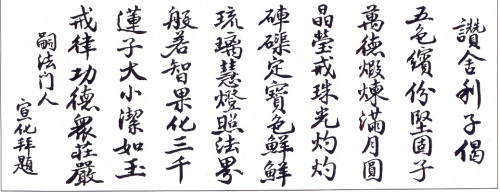 讚舍利子偈
五色繽份堅固子
萬德煅煉滿月圓
晶瑩戒珠光灼灼
硨磲定寶色鮮鮮
琉璃慧燈照法界
般若智果化三千
蓮子大小潔如玉
戒律功德衆莊嚴
嗣法门人
宣化拜題